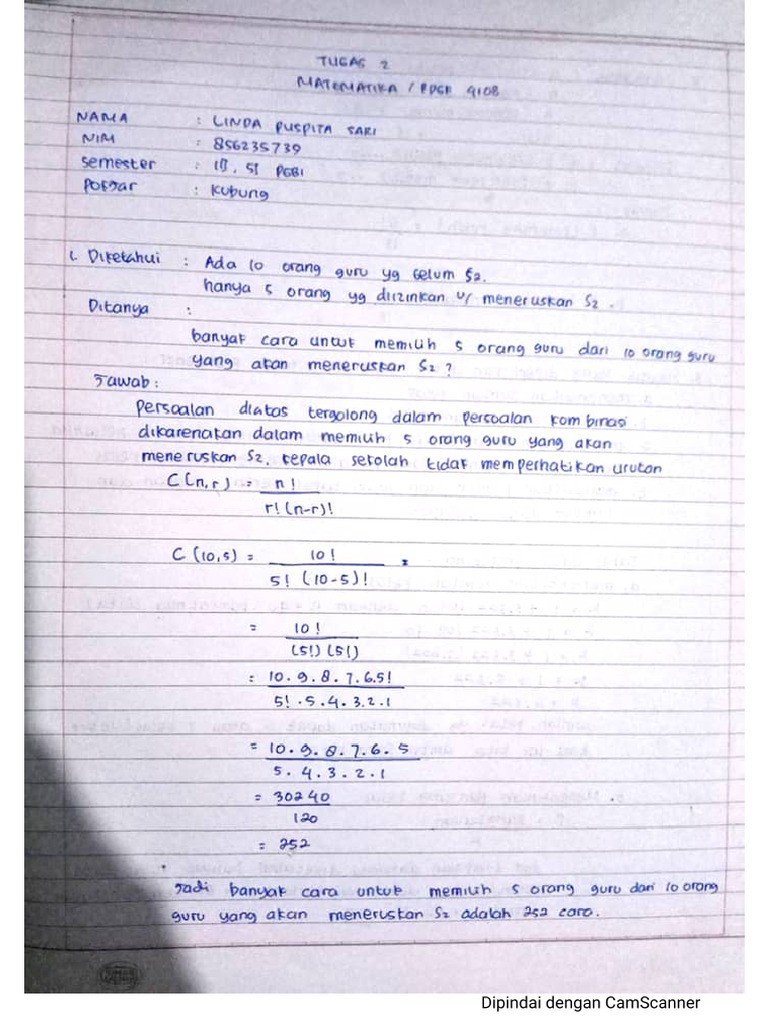 TUGAS 2
MATEMATIKA / PDGK 4108
NAMA : LINDA PUSPITA SARI
NIM : 856235739
Semester : , S1 PGBI
Pokjar : Kubung
1. Diketahui : Ada 10 orang guru yg belum S2.
hanya 5 orang yg diizinkan u/ meneruskan S2.
Ditanya :
banyak cara untuk memilih 5 orang guru dari 10 orang guru
yang akan meneruskan S2 ?
Jawab :
Persoalan diatas tergolong dalam persoalan kombinasi
dikarenakan dalam memilih 5 orang guru yang akan
meneruskan S2, kepala sekolah tidak memperhatikan urutan
C (n,r) = n! / r! (n-r)!
C (10,5) = 10! / 5! (10-5)! =
= 10! / (5!) (5!)
= 10.9.8.7.6.5! / 5! .5.4.3.2.1
= 10.9.8.7.6.5 / 5.4.3.2.1
= 30240 / 120
= 252
Jadi banyak cara untuk memilih 5 orang guru dari 10 orang
guru yang akan meneruskan S2 adalah 252 cara.
Dipindai dengan CamScanner